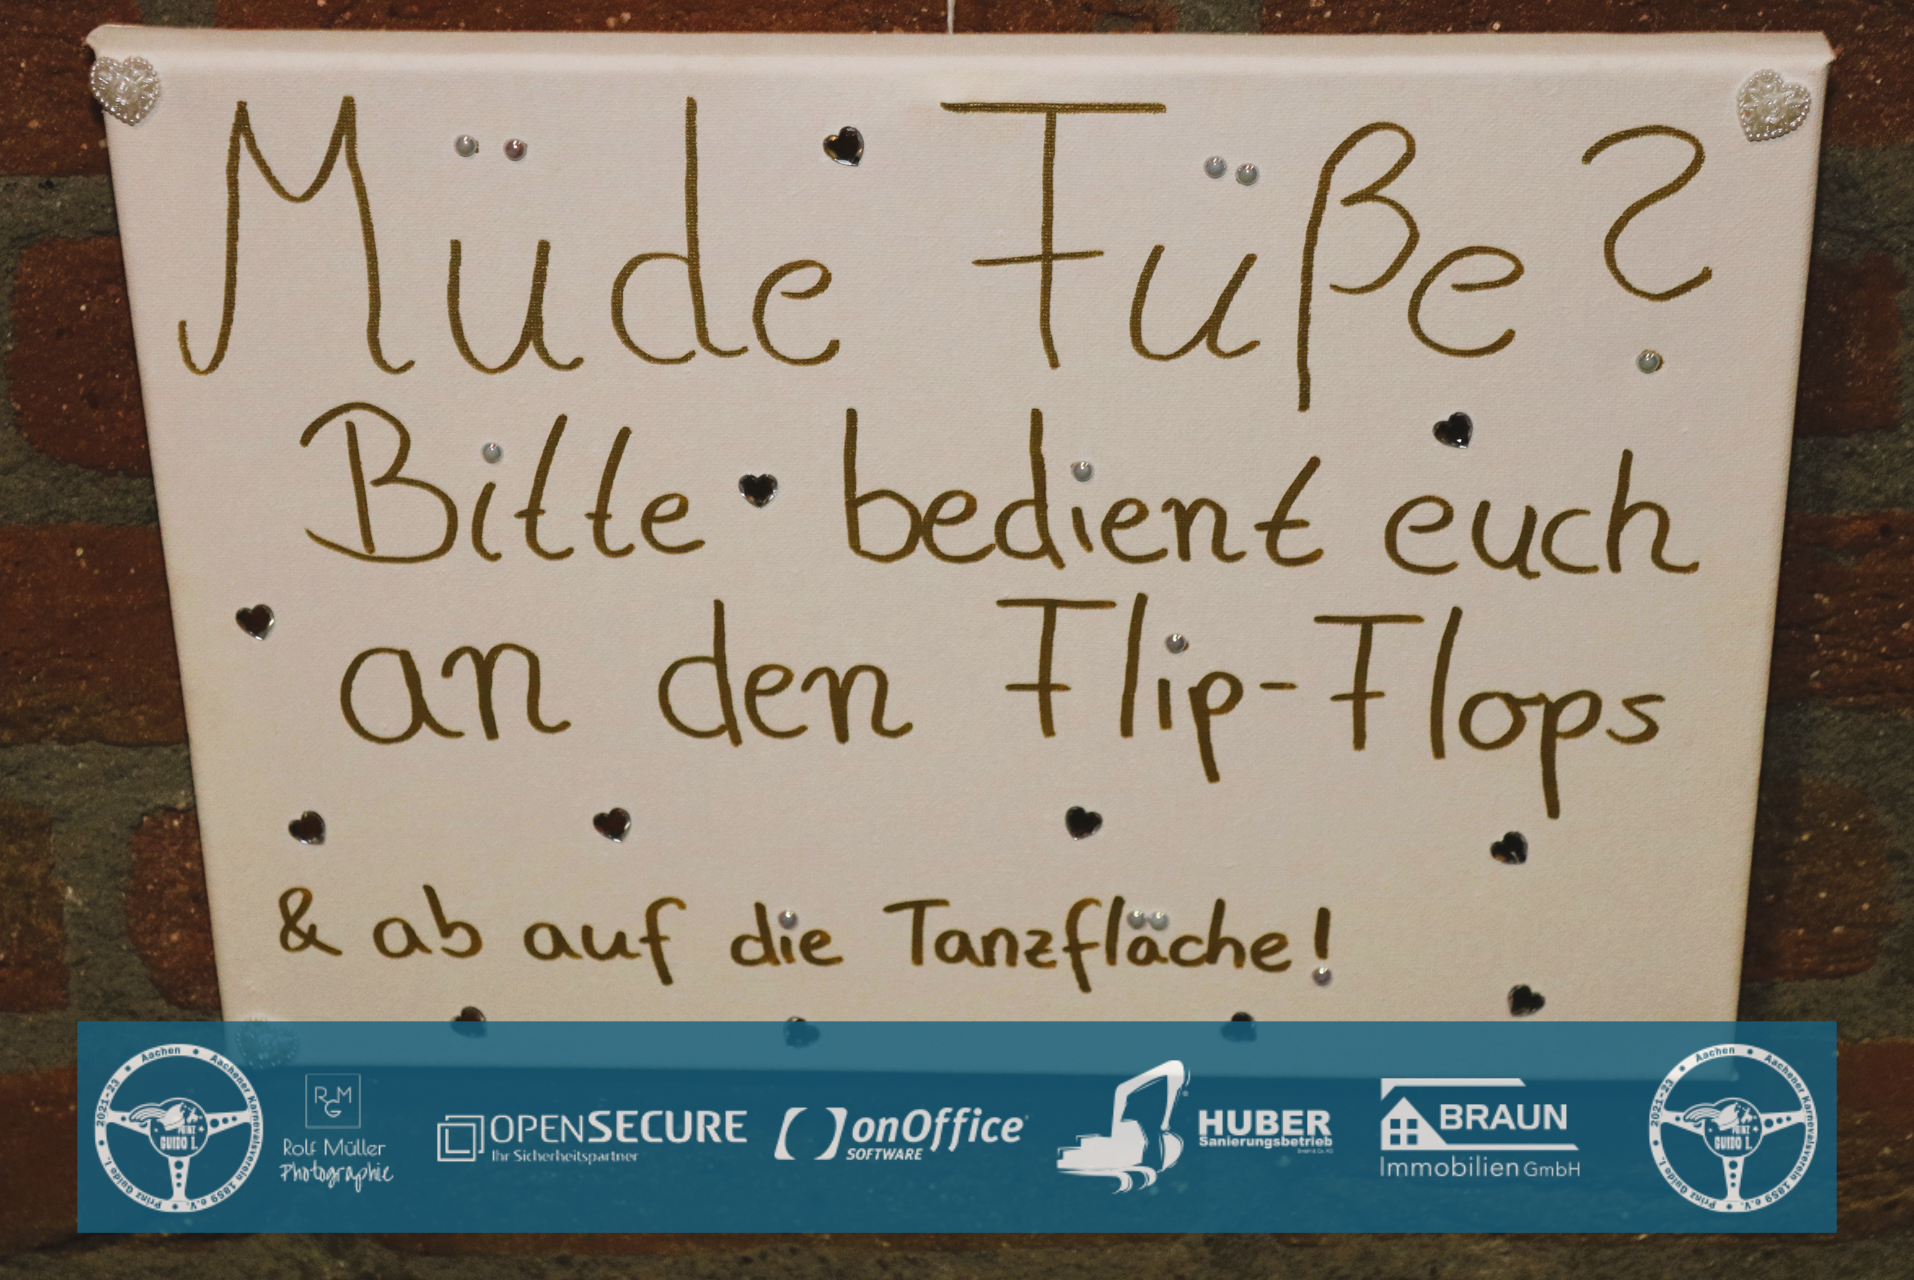 Müde Füße?
Bitte bedient euch
an den Flip-Flops
& ab auf die Tanzfläche!
2021-23 • Aachen • Aachener Karnevalsverein 1859 e.V. • Prinz Guido I. •
PRINZ
GUIDO I.
RGM
Rolf Müller
Photographie
OPENSECURE
Ihr Sicherheitspartner
onOffice
SOFTWARE
HUBER
Sanierungsbetrieb
GmbH & Co. KG
BRAUN
Immobilien GmbH
2021-23 • Aachen • Aachener Karnevalsverein 1859 e.V. • Prinz Guido I. •
PRINZ
GUIDO I.